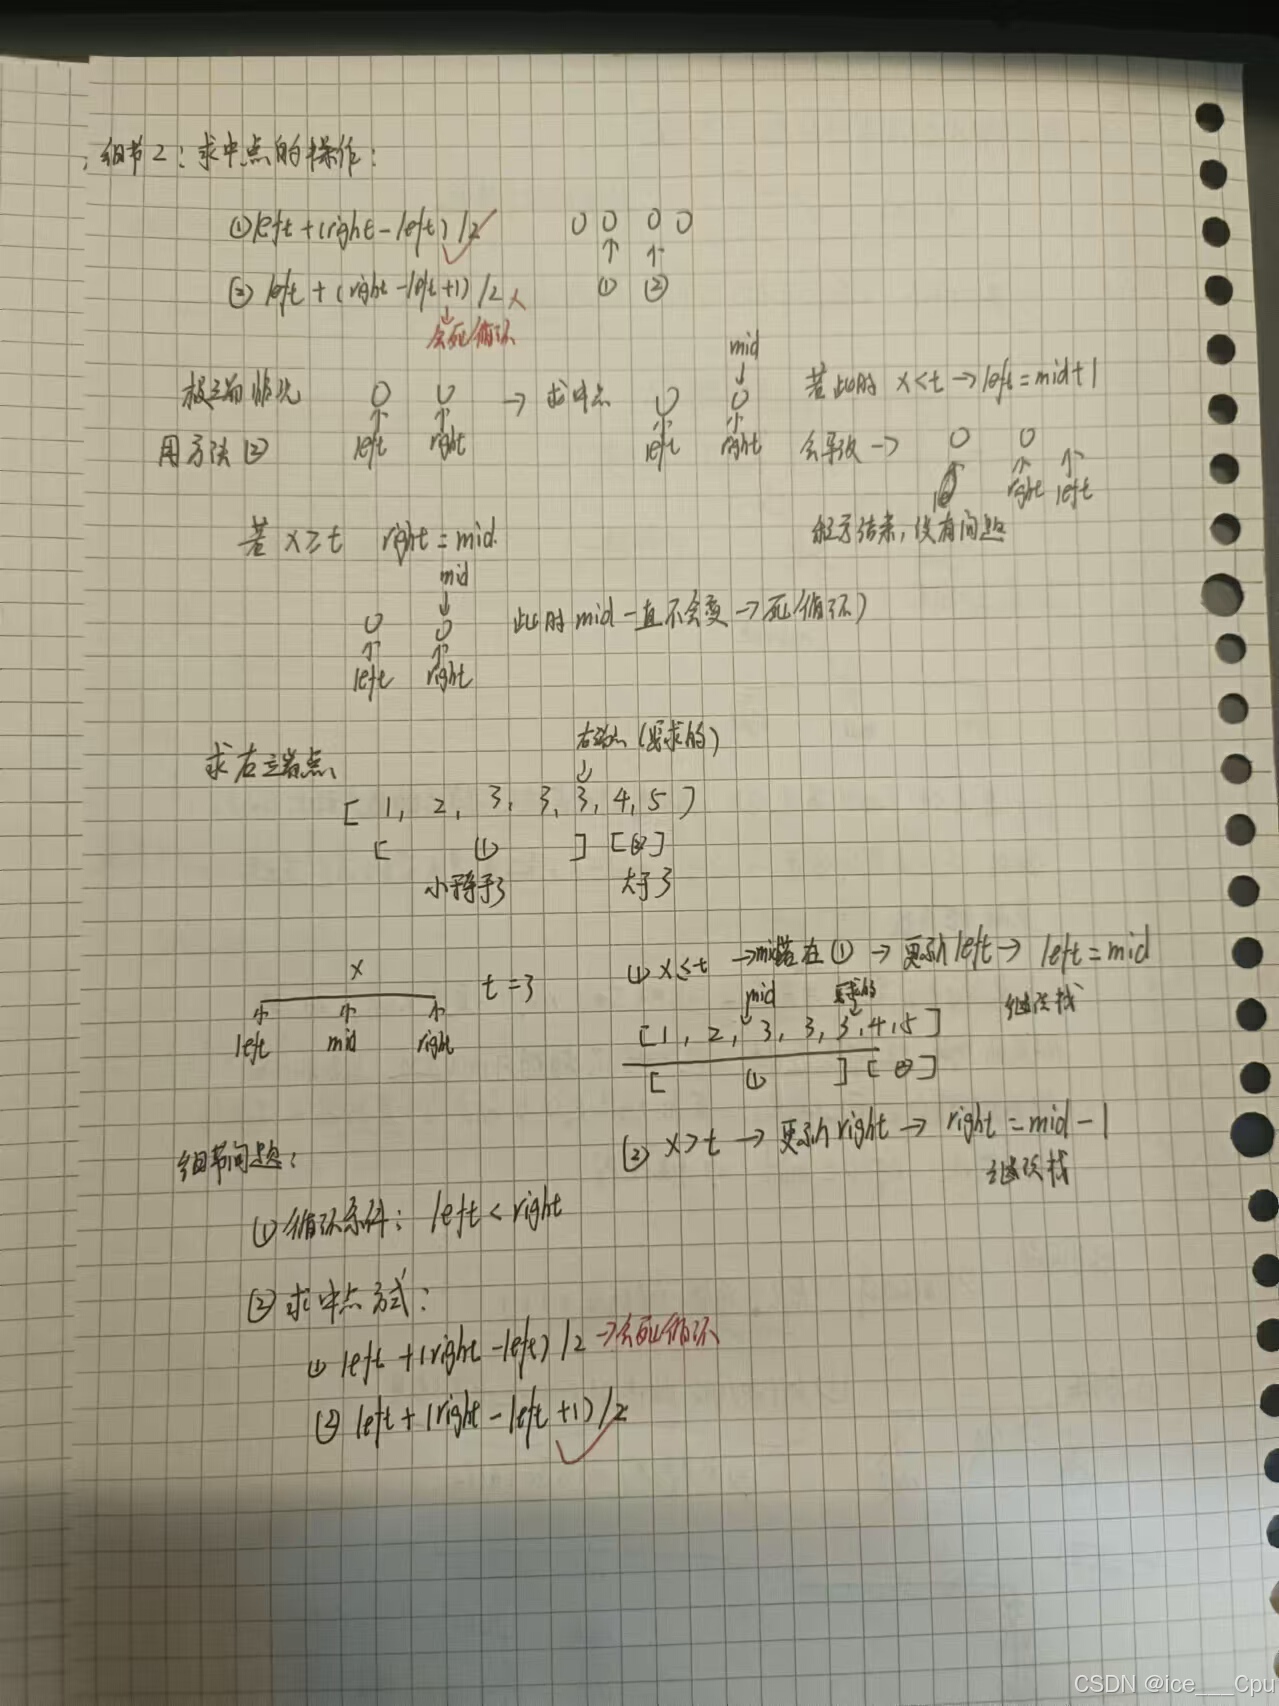 细节2：求中点的操作：
① left+(right-left)/2 ✓
② left+(right-left+1)/2 ×
会死循环
0 0 0 0
↑ ↑
① ②
极端情况
用方法②
0 0 → 求中点 0 0
left right
mid
left right
若此时 x<t → left=mid+1
会导致 → 0 0
right left
程序结束，没有问题
若 x≥t right=mid
mid
0 0
left right
此时mid一直不会变→死循环）
求右端点
右端点（要求的）
[ 1, 2, 3, 3, 3, 4, 5 ]
[ ① ] [ ② ]
小于等于3 大于3
x
left mid right
t=3
① x≤t → mid落在① → 更新left → left=mid
继续找
mid 要求的
[1, 2, 3, 3, 3, 4, 5]
[ ① ] [ ② ]
② x>t → 更新right → right=mid-1
继续找
细节问题：
① 循环条件：left<right
② 求中点方式：
① left+(right-left)/2 →会死循环
② left+(right-left+1)/2 ✓
CSDN @ice___Cpu